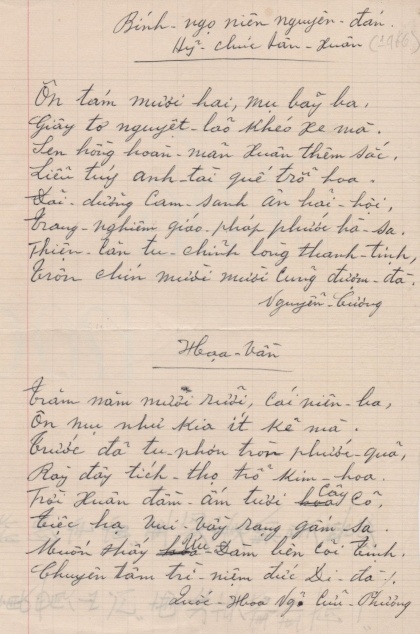 Bính-ngọ niên nguyên-đán.
Hỷ-chúc tân-xuân (1966)
Ôn tám mươi hai, mụ bảy ba,
Giây tơ nguyệt-lão khéo xe mà.
Sen hồng hoàn-mãn xuân thêm sắc,
Liễu túy anh-tài quế trổ hoa.
Đãi-dưỡng Cam-sanh ân hải-hội,
Trang-nghiêm giáo-pháp phước hà-sa.
Thiện-tân tu-chỉnh lòng thanh-tịnh,
Tròn chín mười mươi cũng đượm-đà.
Nguyên-Cương
Họa-vần
Trăm năm mười rưỡi, cái niên-ba,
Ôn mụ như kia ít kẻ mà.
Trước đã tu-nhơn tròn phước-quả,
Rày đây tích-thọ trổ kim-hoa.
Trời xuân đầm-ấm tươi Cây Cỏ,
Tiệc hạ vui-vầy rạng gấm sa.
Muốn thấy Ưu Đàm bên cõi tịnh,
Chuyên tâm trì-niệm đức Di-đà.
Quốc-Hoa Ngô Cửu-Phương